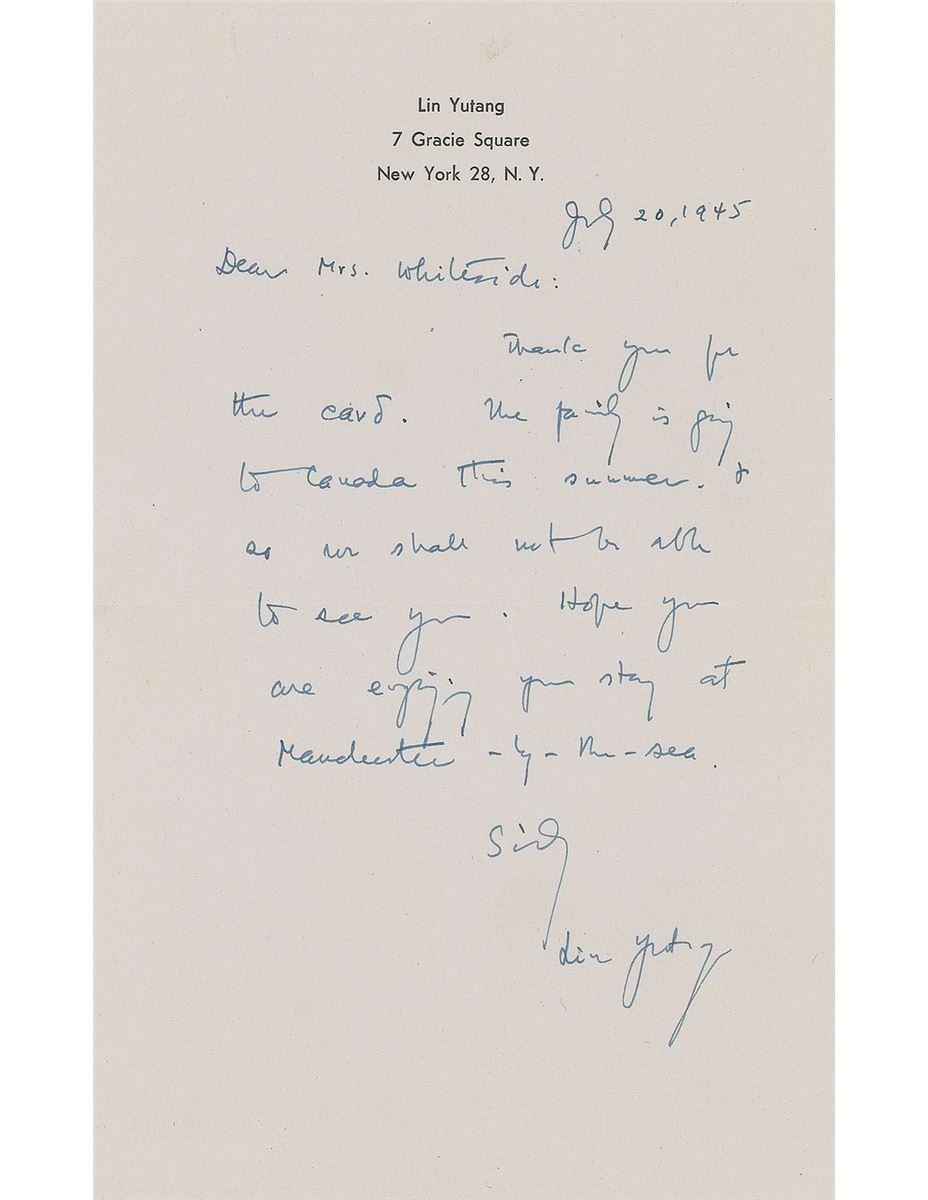 Lin Yutang
7 Gracie Square
New York 28, N. Y.
July 20, 1945
Dear Mrs. Whiteside:
Thank you for
the card. The family is going
to Canada this summer. &
so we shall not be able
to see you. Hope you
are enjoying your stay at
Manchester-by-the-sea.
Sincerely
Lin Yutang